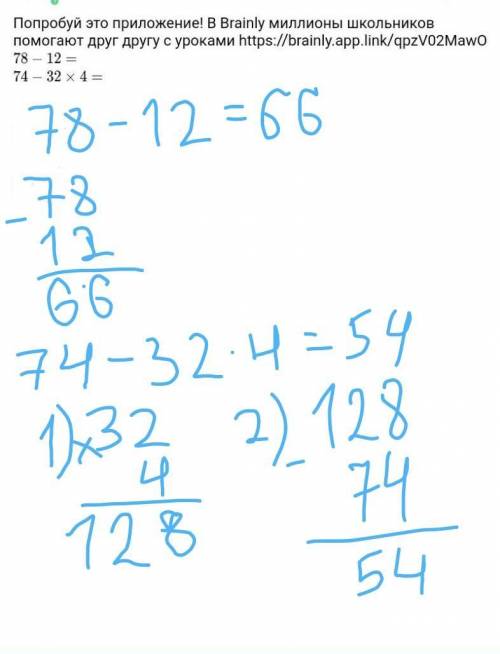 Попробуй это приложение! В Brainly миллионы школьников
помогают друг другу с уроками https://brainly.app.link/qpzV02MawO
78 − 12 =
74 − 32 × 4 =
78 - 12 = 66
- 78
12
66
74 - 32 · 4 = 54
1) × 32
4
128
2) - 128
74
54